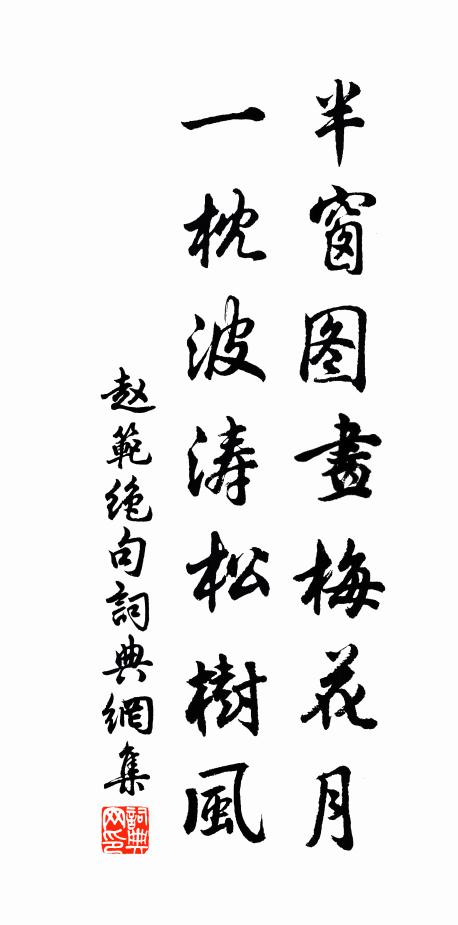 半窗图畫梅花月
一枕波涛松樹風
赵範绝句詞典網集
詞典网印